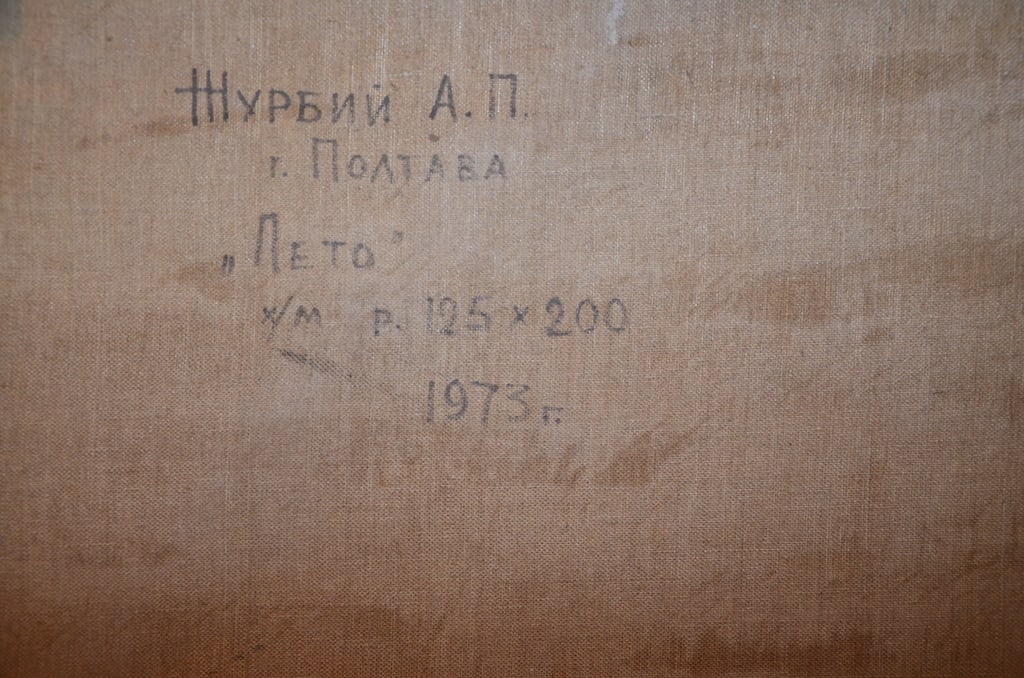 Журбий А.П.
г. Полтава
„Лето"
х/м р. 125 х 200
1973 г.